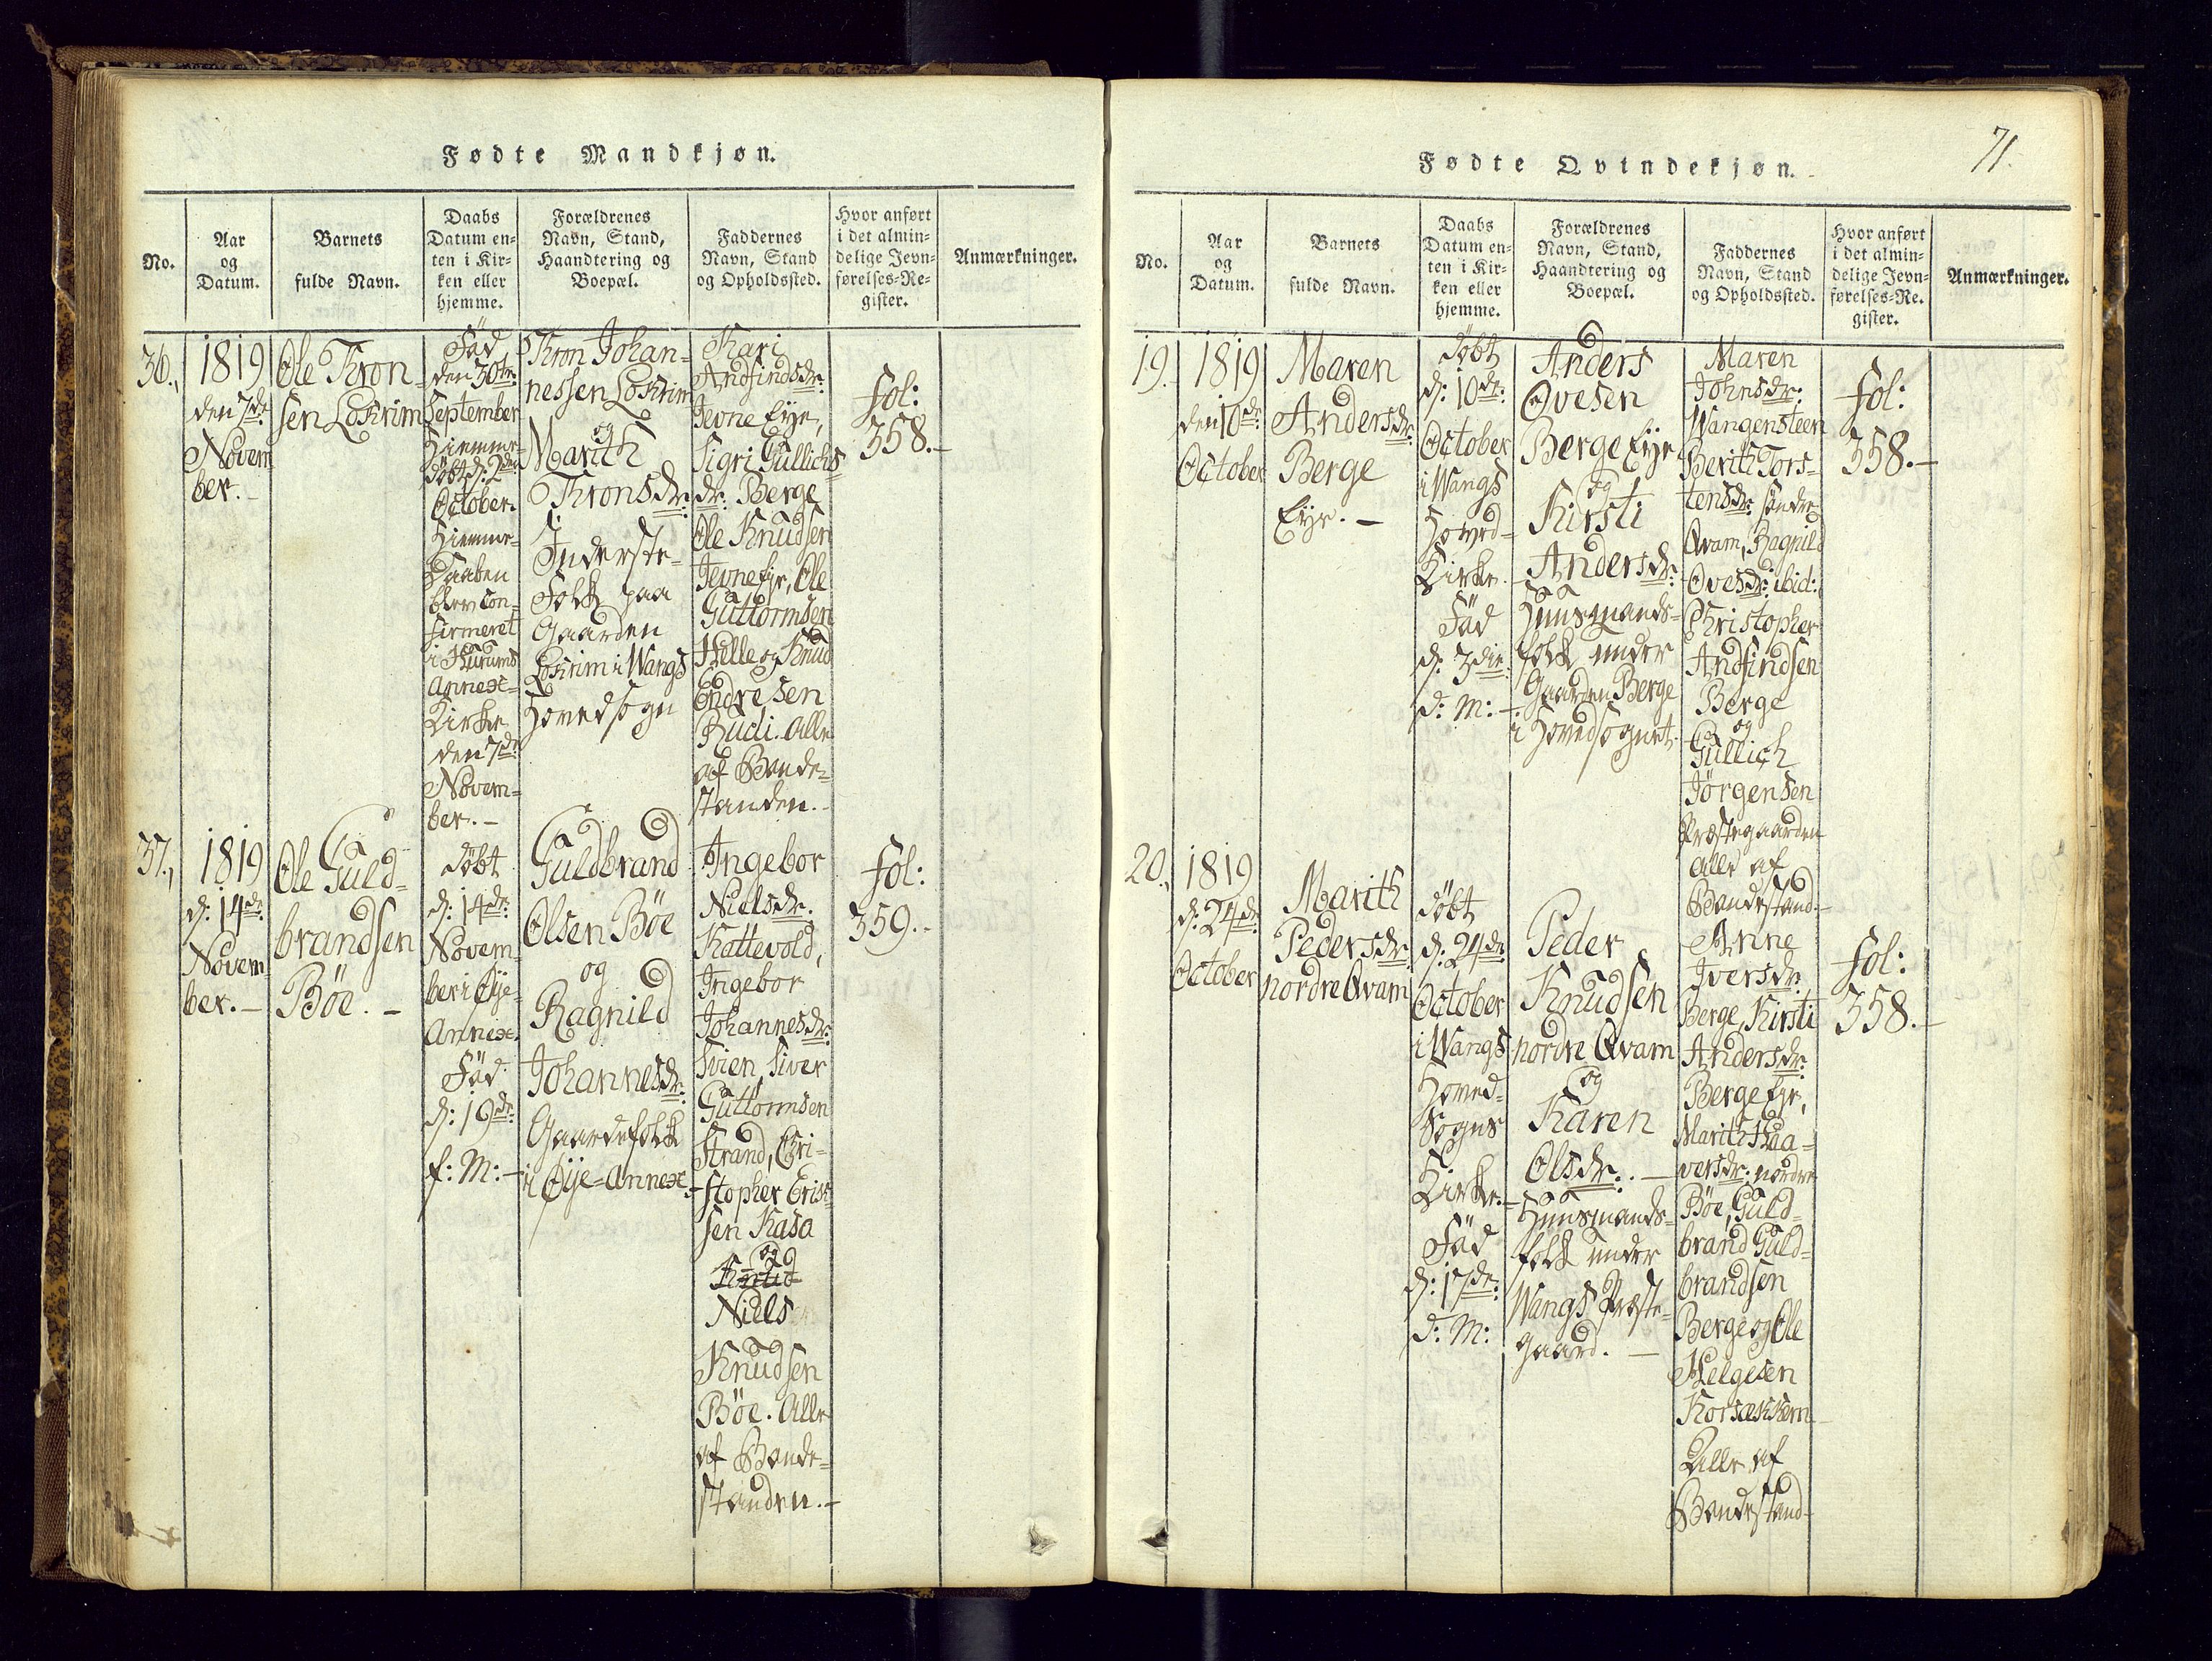 Fødte Mandkjøn.
No.
Aar
og
Datum.
Barnets
fulde Navn.
Daabs
Datum en-
ten i Kir-
ken eller
hjemme.
Forældrenes
Navn, Stand,
Haandtering og
Boepæl.
Faddernes
Navn, Stand
og Opholdssted.
Hvor anført
i det almin-
delige Jevn-
førelses-Re-
gister.
Anmærkninger.
36.,
1819
den 7de
Novem
ber. -
Ole Thron-
sen Lokrim
Föd
den 30te
September
Hiemme-
döbt d: 2den
October.
Hiemme-
Daaben
blev con-
firmeret
i Hurums
Annex-
Kirke
den 7de
Novem-
ber. -
Thron Johan-
nessen Lokrim
og
Marith
Thronsdr:
Inderste-
Folk paa
Gaarden
Lokrim i Wangs
Hovedsogn
Kari
Andfindsdr:
Jevne Eye,
Sigri Gullichs
dr: Berge
Ole Knudsen
Jevne Eje, Ole
Guttormsen
Helle og Knud
Endresen
Rudi. Alle
af Bonde-
standen. -
fol:
358. -
37.,
1819
d: 14de
Novem-
ber. -
Ole Guld-
brandsen
Böe. -
Döbt
d: 14de
Novem-
ber i Øye-
Annex.
Föd
d: 19de
f: M: -
Guldbrand
Olsen Böe
og
Ragnild
Johannesdr:
Gaardefolk
i Øye-Annex. -
Ingebor
Nielsdr:
Kattevold,
Ingebor
Johannesdr:
Svien Siver
Guttormsen
Strand, Chri-
stopher Erich
sen Kasa
og
Knud
Niels
Knudsen
Böe. Alle
af Bonde-
standen. -
fol:
359. -
71.
Fødte Qvindekjøn.
No.
Aar
og
Datum.
Barnets
fulde Navn.
Daabs
Datum en-
ten i Kir-
ken eller
hjemme.
Forældrenes
Navn, Stand,
Haandtering og
Boepæl.
Faddernes
Navn, Stand
og Opholdssted.
Hvor anført
i det almin-
delige Jevn-
førelses-Re-
gister.
Anmærkninger.
19.
1819
den 10de
October
Maren
Andersdr:
Berge
Eye. -
Döbt
d: 10de
October
i Wangs
Hoved-
Kirke. -
Föd
d: 3die
d: M: -
Anders
Ovesen
Berge Eye
og
Kirsti
Andersdr:
Huusmands-
folk under
Gaarden Berge
i Hovedsognet.
Maren
Johnsdr:
Wangensteen
Berith Tors-
tensdr: söndre
Qvam, Ragnild
Ovesdr: ibid:
Christopher
Andfindsen
Berge
og
Gullich
Jörgensen
Præstegaarden
Alle af
Bondestand. -
fol:
358. -
20.,
1819
d: 24de
October
Marith
Pedersdr:
nordre Qvam
Döbt
d: 24de
October
i Wangs
Hoved-
Sogns
Kirke. -
Föd
d: 17de
d: M:
Peder
Knudsen
nordre Qvam
og
Karen
Olsdr: . -
Huusmands-
folk under
Wangs Præste-
gaard. -
Anne
Iversdr
Berge, Kirsti
Andersdr:
Berge Eye,
Marith Haa-
versdr: nordre
Böe, Guld-
brand Guld-
brandsen
Berge og Ole
Helgesen
Alle af
Bondestand-
fol:
358. -